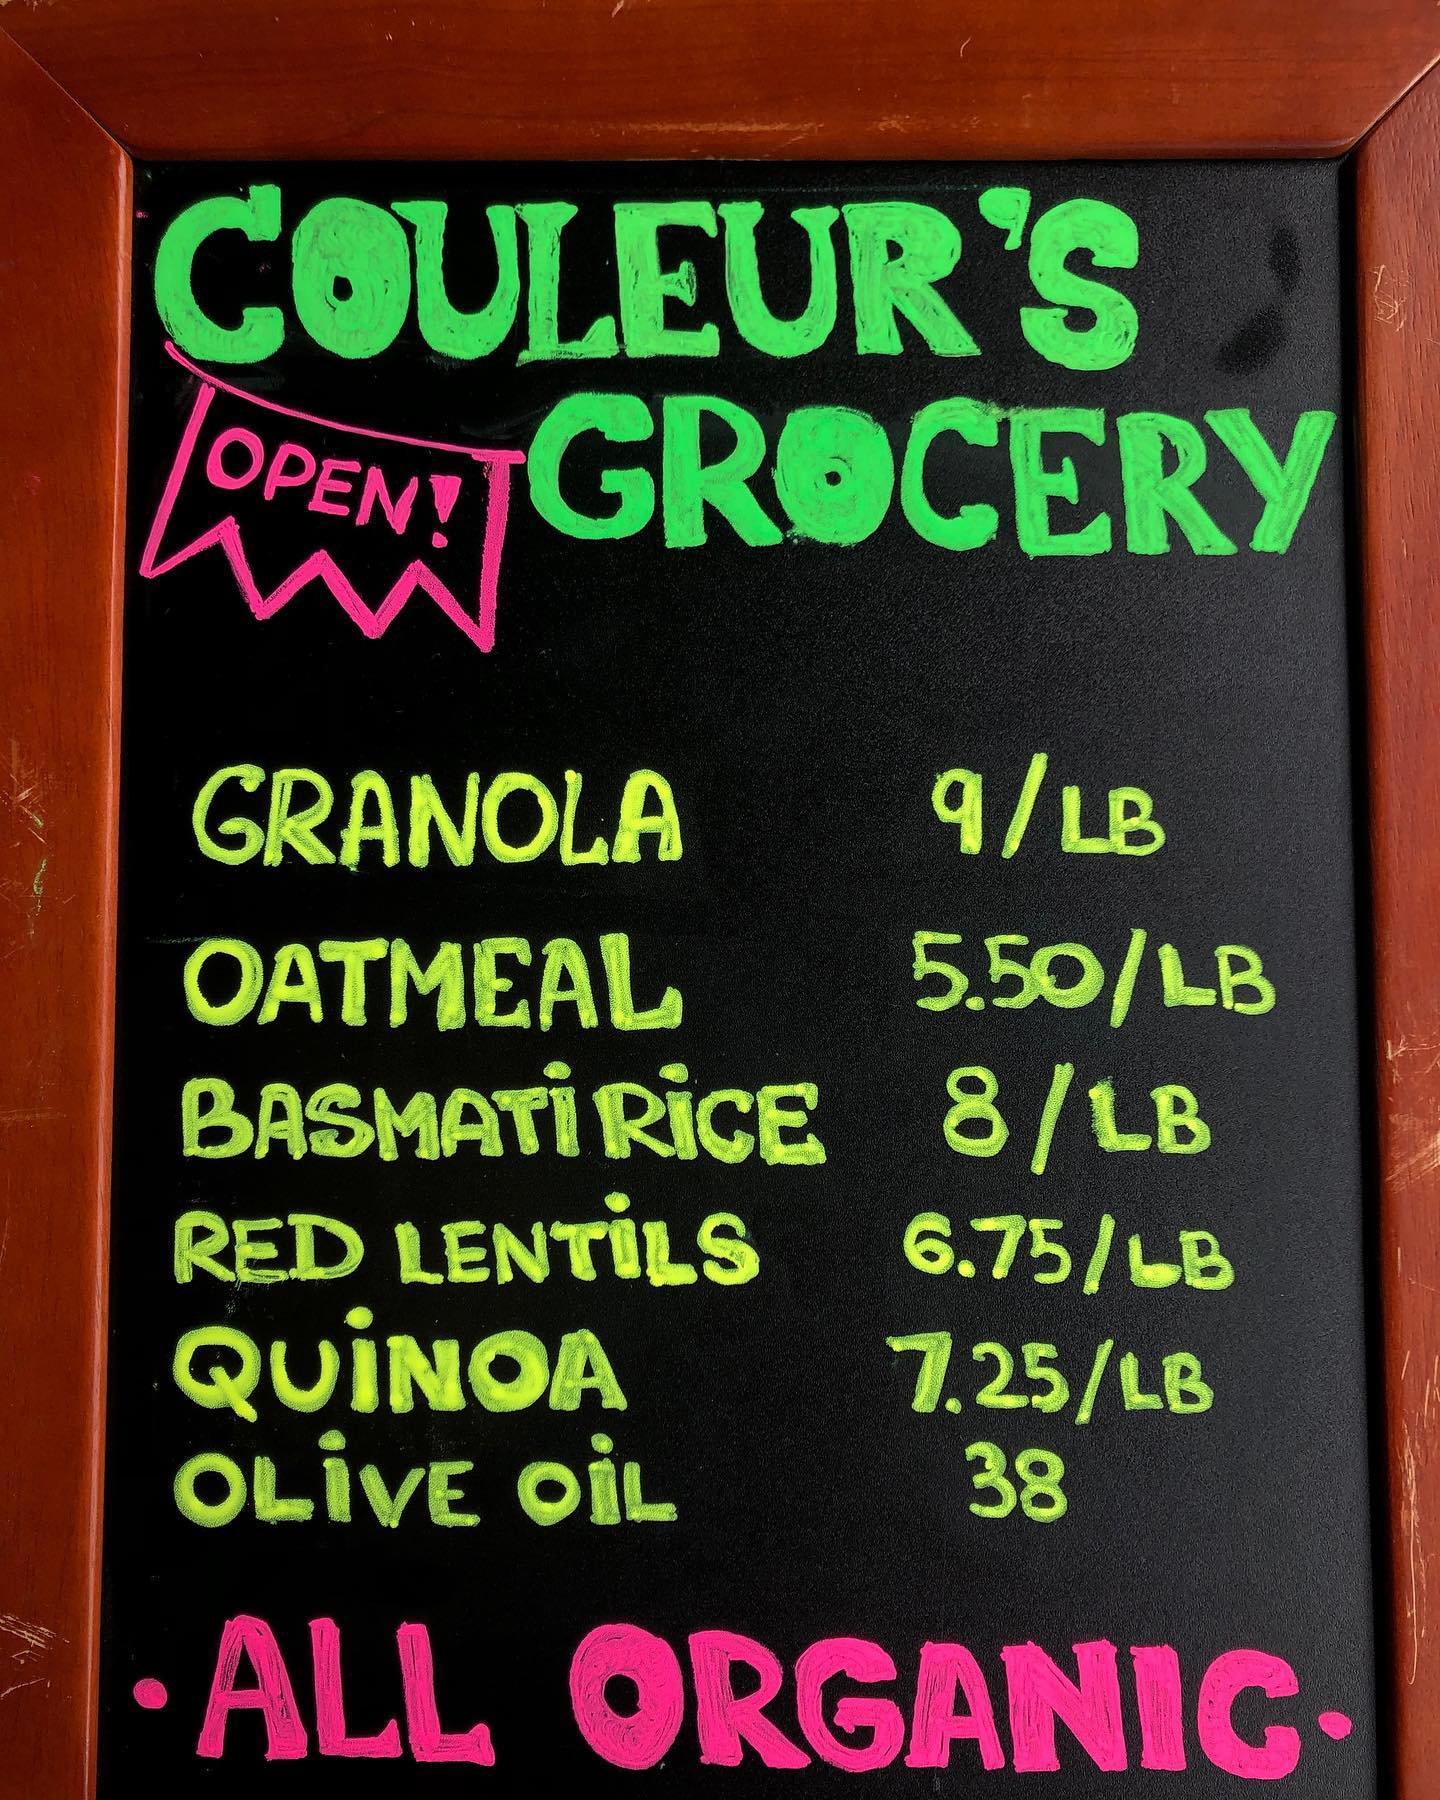 COULEUR'S
GROCERY
OPEN!
GRANOLA 9/LB
OATMEAL 5.50/LB
BASMATI RICE 8/LB
RED LENTILS 6.75/LB
QUINOA 7.25/LB
OLIVE OIL 38
• ALL ORGANIC •